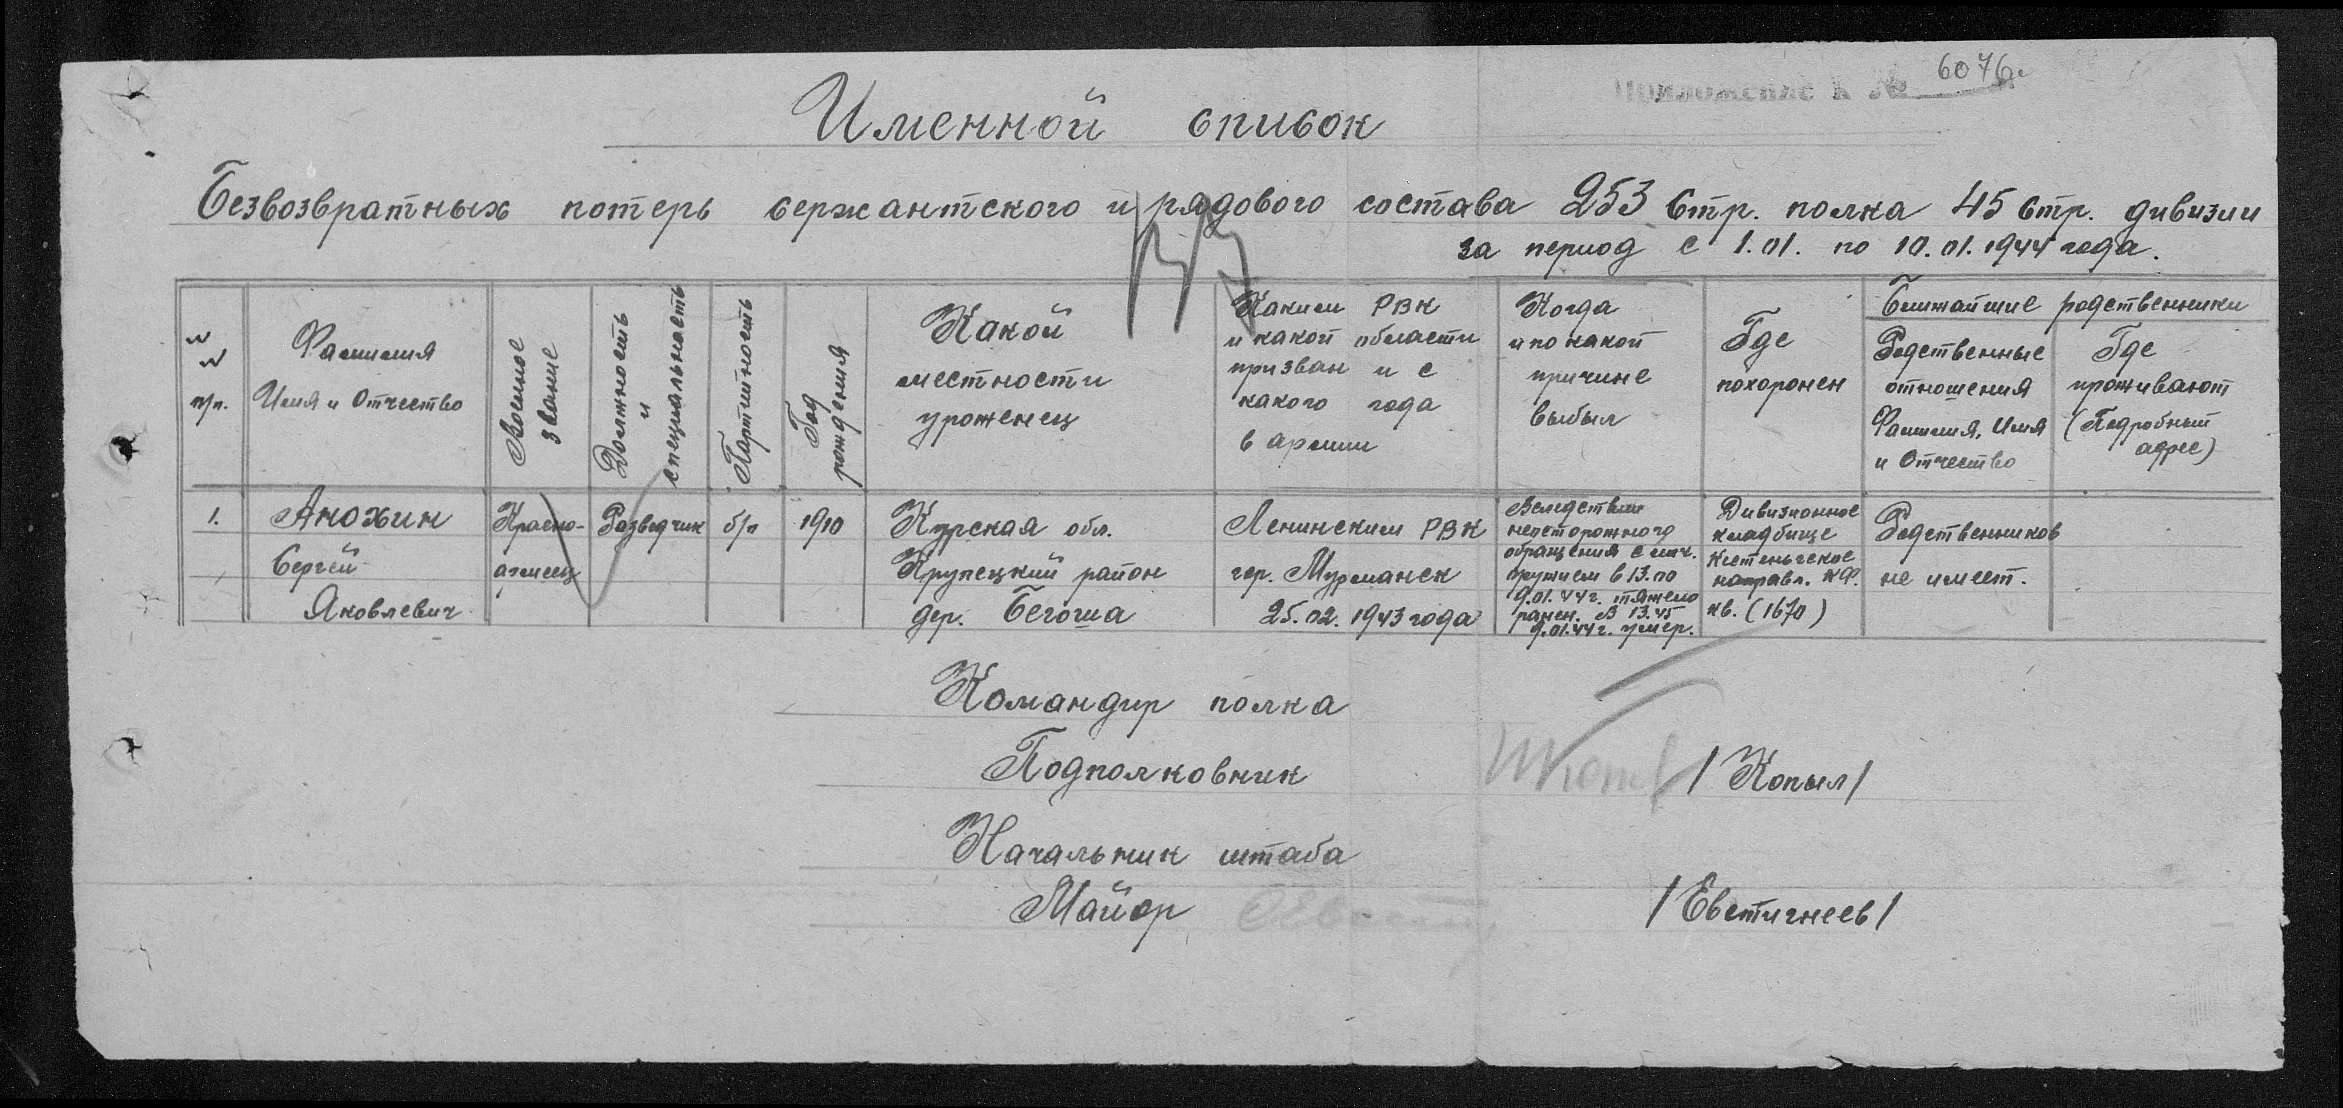 Приложение к № 6076.
Именной список
Безвозвратных потерь сержантского и рядового состава 253 Стр. полка 45 Стр. дивизии
за период с 1.01. по 10.01.1944 года.
№ № п/п.
Фамилия
Имя и Отчество
Военное
звание
Должность
и
специальность
Партийность
Год
рождения
Какой
местности
уроженец
Каким РВК
и какой области
призван и с
какого года
в армии
Когда
и по какой
причине
выбыл
Где
похоронен
Ближайшие родственники
Родственные
отношения
Фамилия, Имя
и Отчество
Где
проживают
(Подробный
адрес)
1.
Анохин
Сергей
Яковлевич
Красно-
армеец
Разведчик
б/п
1910
Курская обл.
Крупецкий район
дер. Бегоша
Ленинским РВК
гор. Мурманск
25.02.1943 года
Вследствии
неосторожного
обращения с лич.
оружием в 13.00
9.01.44 г. тяжело
ранен. В 13.45
9.01.44 г. умер.
Дивизионное
кладбище
Кестеньгское
направл. КФ.
кв. (1670)
Родственников
не имеет.
Командир полка
Подполковник /Копыл/
Начальник штаба
Майор /Евстигнеев/